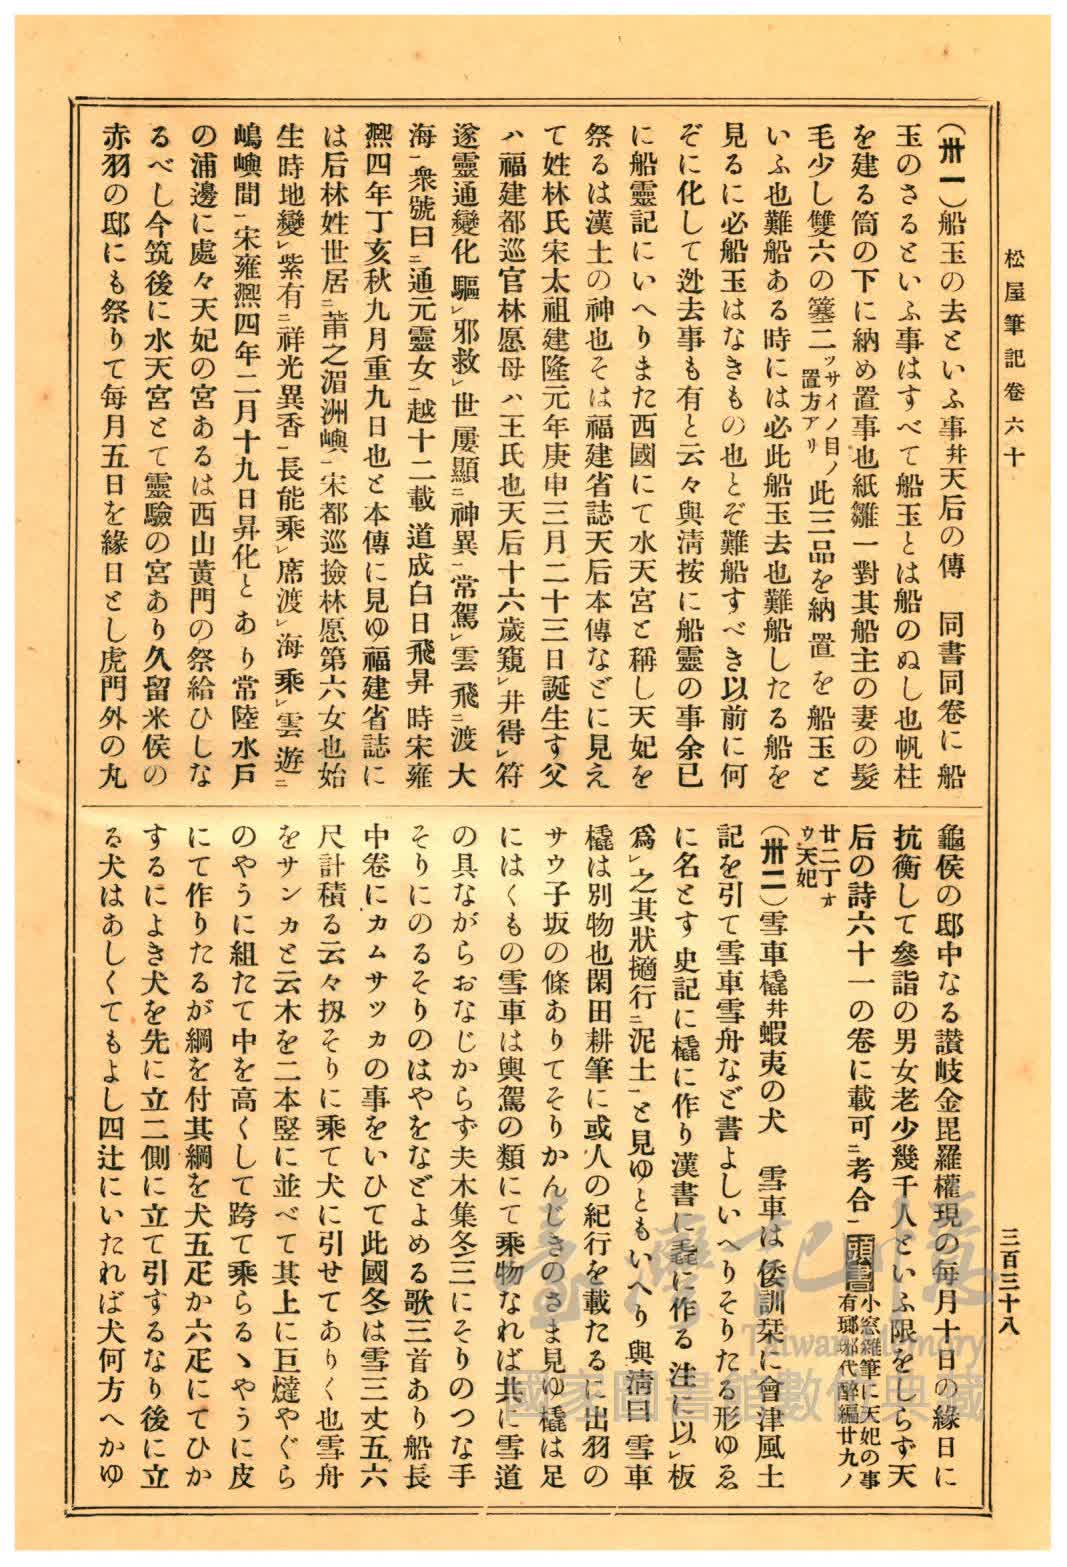 松屋筆記卷六十
三百三十八
(卅一)船玉の去といふ事幷天后の傳　同書同卷に船
玉のさるといふ事はすべて船玉とは船のぬし也帆柱
を建る筒の下に納め置事也紙雛一對其船主の妻の髮
毛少し雙六の簺二ッサイノ目ノ置方アリ此三品を納置を船玉と
いふ也難船ある時には必此船玉去也難船したる船を
見るに必船玉はなきもの也とぞ難船すべき以前に何
ぞに化して迯去事も有と云々與淸按に船靈の事余已
に船靈記にいへりまた西國にて水天宮と稱し天妃を
祭るは漢土の神也そは福建省誌天后本傳などに見え
て姓林氏宋太祖建隆元年庚申三月二十三日誕生す父
ハ福建都巡官林愿母ハ王氏也天后十六歲窺レ井得レ符
遂靈通變化驅レ邪救レ世屢顯ニ神異一常駕レ雲飛ニ渡大
海一衆號曰ニ通元靈女一越十二載道成白日飛昇時宋雍
熈四年丁亥秋九月重九日也と本傳に見ゆ福建省誌に
は后林姓世居ニ莆之湄洲嶼一宋都巡撿林愿第六女也始
生時地變レ紫有ニ祥光異香一長能乘レ席渡レ海乘レ雲遊ニ
嶋嶼間一宋雍熈四年二月十九日昇化とあり常陸水戶
の浦邊に處々天妃の宮あるは西山黃門の祭給ひしな
るべし今筑後に水天宮とて靈驗の宮あり久留米侯の
赤羽の邸にも祭りて每月五日を緣日とし虎門外の丸
龜侯の邸中なる讃岐金毘羅權現の每月十日の緣日に
抗衡して參詣の男女老少幾千人といふ限をしらず天
后の詩六十一の卷に載可ニ考合一頭書小窓雜筆に天妃の事有瑯琊代醉編廿九ノ
廿二丁オウ天妃
(卅二)雪車橇幷蝦夷の犬　雪車は倭訓栞に會津風土
記を引て雪車雪舟など書よしいへりそりたる形ゆゑ
に名とす史記に橇に作り漢書に毳に作る注に以レ板
爲レ之其狀擿行ニ泥土一と見ゆともいへり與淸曰雪車
橇は別物也閑田耕筆に或人の紀行を載たるに出羽の
サウ子坂の條ありてそりかんじきのさま見ゆ橇は足
にはくもの雪車は輿駕の類にて乘物なれば共に雪道
の具ながらおなじからず夫木集冬三にそりのつな手
そりにのるそりのはやをなどよめる歌三首あり船長
中卷にカムサツカの事をいひて此國冬は雪三丈五六
尺計積る云々扨そりに乘て犬に引せてありく也雪舟
をサンカと云木を二本竪に並べて其上に巨燵やぐら
のやうに組たて中を高くして跨て乘らるゝやうに皮
にて作りたるが綱を付其綱を犬五疋か六疋にてひか
するによき犬を先に立二側に立て引するなり後に立
る犬はあしくてもよし四辻にいたれば犬何方へかゆ
臺灣記憶
Taiwan Memory
國家圖書館數位典藏